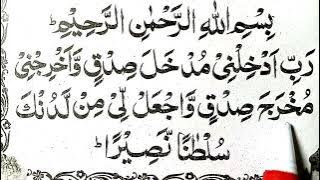 بِسْمِ اللهِ الرَّحْمٰنِ الرَّحِيْمِ ؕ
رَبِّ اَدْخِلْنِيْ مُدْخَلَ صِدْقٍ وَّاَخْرِجْنِيْ
مُخْرَجَ صِدْقٍ وَّاجْعَلْ لِّيْ مِنْ لَّدُنْكَ
سُلْطٰنًا نَّصِيْرًا ؕ